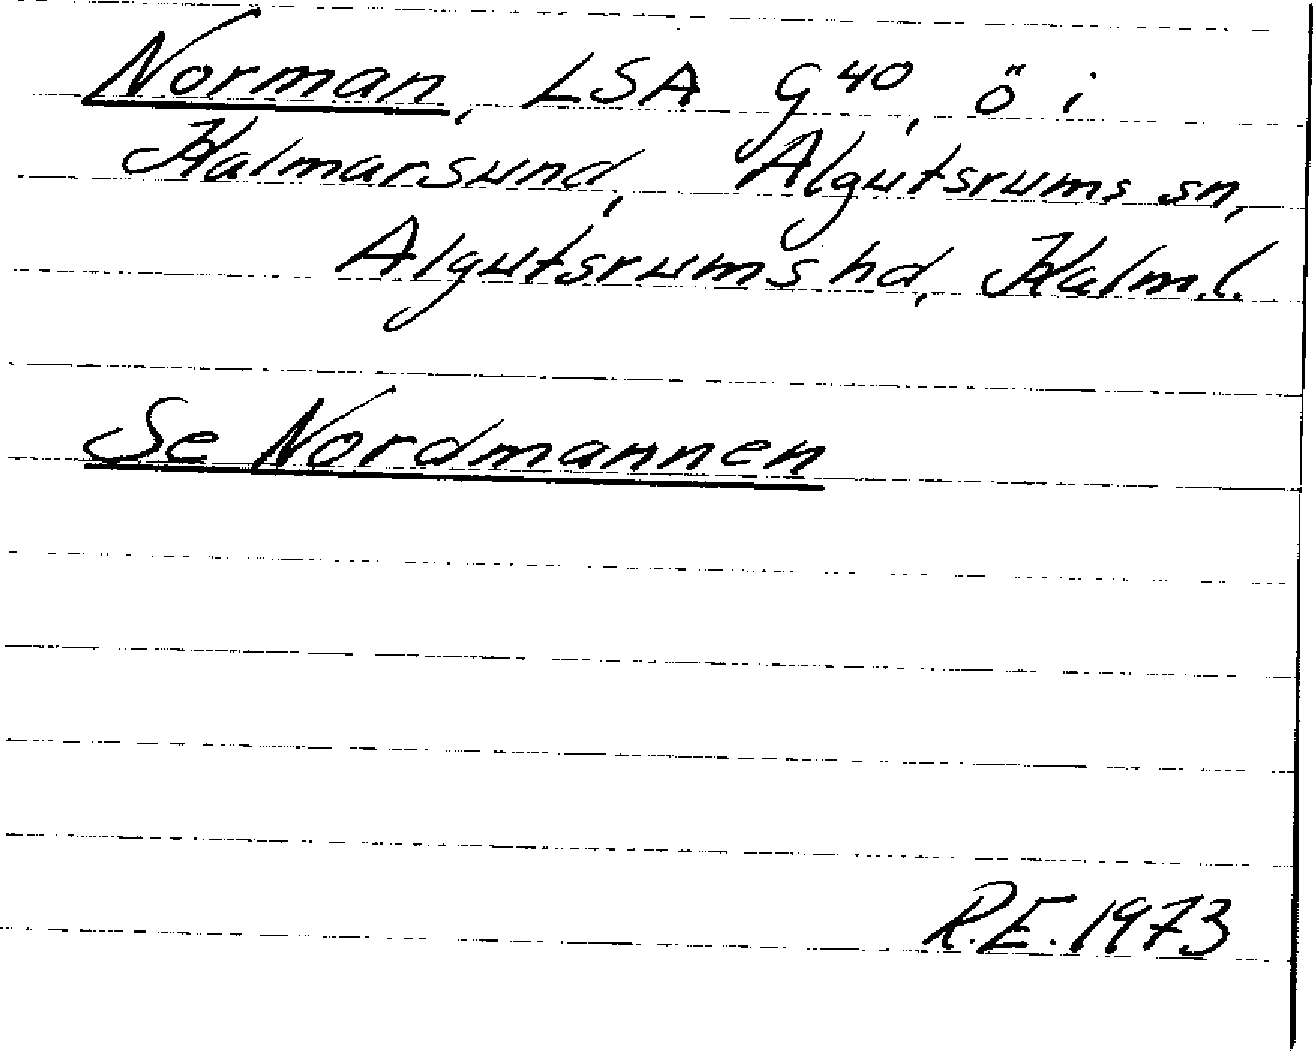 Norman, LSA G40, ö i
Kalmarsund, Algutsrums sn,
Algutsrums hd, Kalm.l.
Se Nordmannen
R.E. 1973